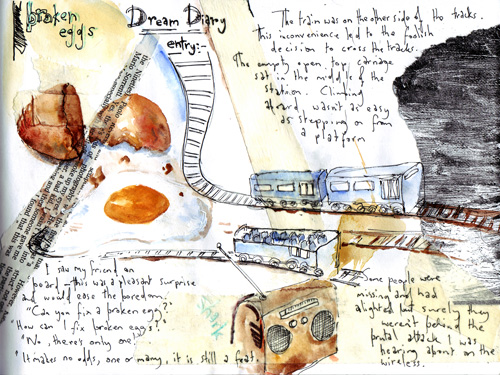 broken
eggs
Dream Diary
entry:-
The train was on the other side of the tracks.
This inconvenience led to the foolish
decision to cross the tracks.
The empty open top carriage
sat in the middle of the
station. Climbing
aboard, wasn't as easy
as stepping on from
a platform
I saw my friend on
board - this was a pleasant surprise
and would ease the boredom.
"Can you fix a broken egg?"
"How can I fix broken eggs?"
"No, there's only one"
"It makes no odds, one or many, it is still a feat.
Some people were
missing and had
alighted but surely they
weren't behind the
brutal attack I was
hearing about on the
wireless.